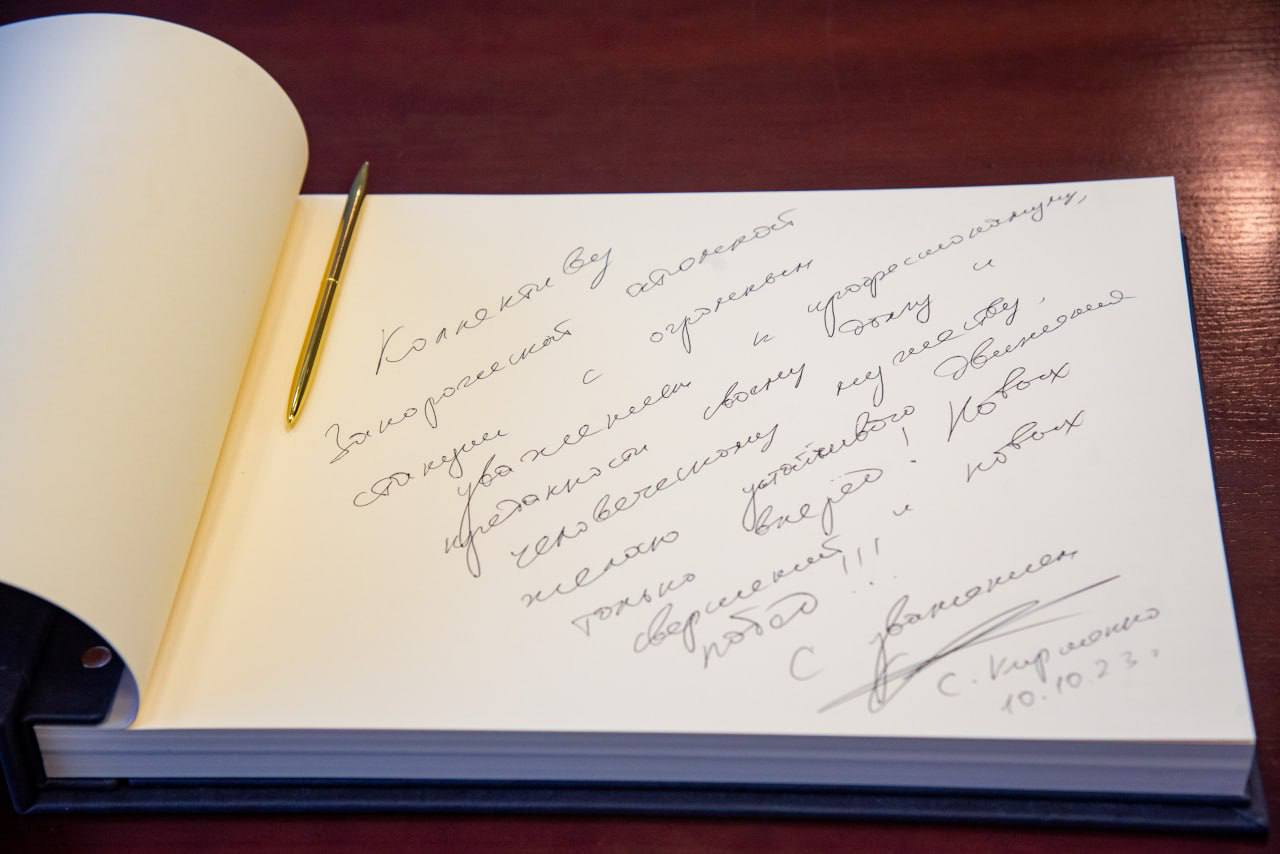 Коллективу
Запорожской атомной
станции с огромным
уважением к профессионализму,
преданности своему делу и
человеческому мужеству.
желаю устойчивого движения
только вперёд! Новых
свершений и новых
побед!!!
С уважением
С. Кириенко
10.10.23.